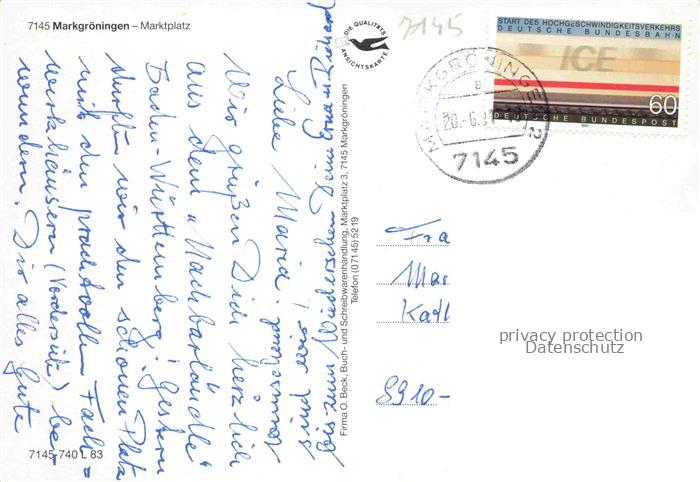 7145 Markgröningen – Marktplatz
Liebe Maria!
Wir grüßen Dich herzlich
aus dem „Nachbarländle"
Baden-Württemberg! Gestern
durften wir den schönen Platz
mit den prachtvollen Fach=
werkhäusern (Vorderseite) be-
wundern. Dir alles Gute
bis zum Wiedersehen Deine
sind wir!
7145-740 L 83
Firma O. Beck, Buch- und Schreibwarenhandlung, Marktplatz 3, 7145 Markgröningen
Telefon (07145) 5219
DIE QUALITÄTS
ANSICHTSKARTE
7145
START DES HOCHGESCHWINDIGKEITSVERKEHRS
DEUTSCHE BUNDESBAHN
ICE
60
DEUTSCHE BUNDESPOST
MARKGRÖNINGEN 2
a
20.-6.9
7145
Fra
Mar
Kadl
8910-
privacy protection
Datenschutz